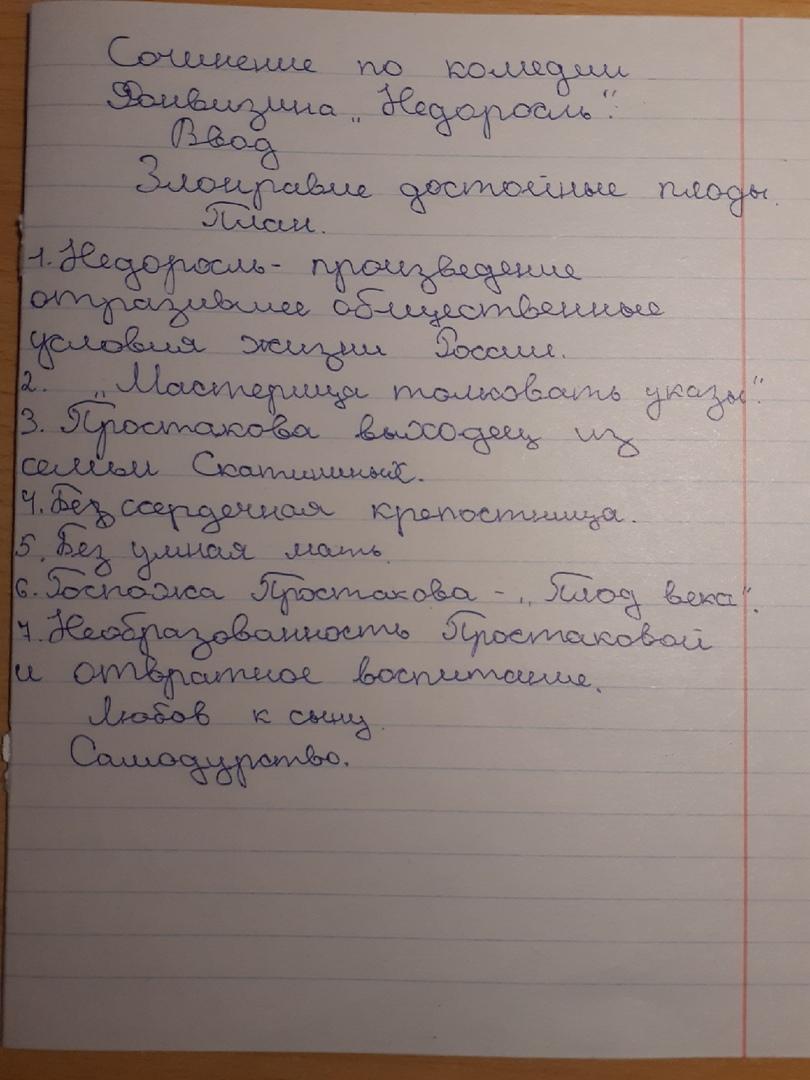 Сочинение по комедии
Фонвизина „Недоросль".
Ввод
Злонравие достойные плоды.
План.
1. Недоросль - произведение
отразившее общественные
условия жизни России.
2. „Мастерица толковать указы".
3. Простакова выходец из
семьи Скатининых.
4. Без ссердечная крепостница.
5. Без умная мать.
6. Госпожа Простакова - „Плод века".
7. Необразованность Простаковой
и отвратное воспитание.
Любов к сыну.
Самодурство.